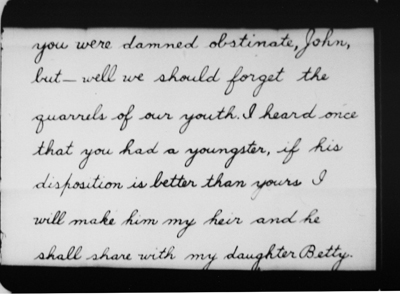 you were damned obstinate, John,
but— well we should forget the
quarrels of our youth. I heard once
that you had a youngster, if his
disposition is better than yours I
will make him my heir and he
shall share with my daughter Betty.